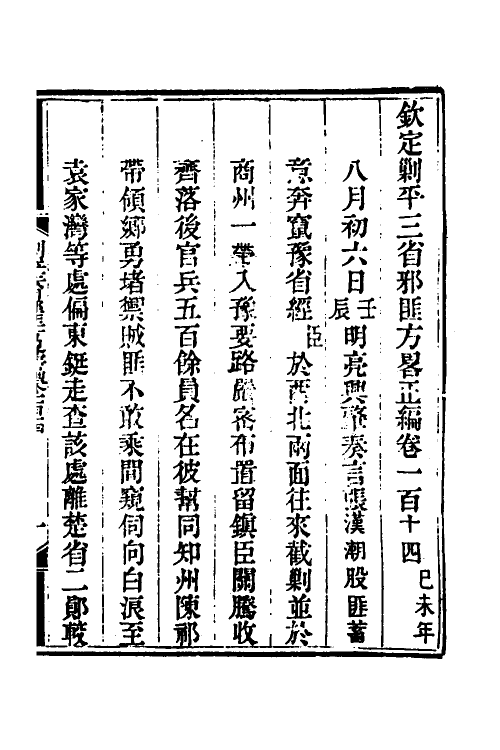 欽定剿平三省邪匪方畧正編卷一百十四 己未年
八月初六日壬辰明亮興肇奏言張漢潮股匪蓄
意奔竄豫省經臣於西北兩面往來截剿並於
商州一帶入豫要路嚴密布置留鎮臣關騰收
齊落後官兵五百餘員名在彼幫同知州陳祁
帶領鄉勇堵禦賊匪不敢乘間窺伺向白浪至
袁家灣等處偏東鋌走查該處離楚省二鄖較